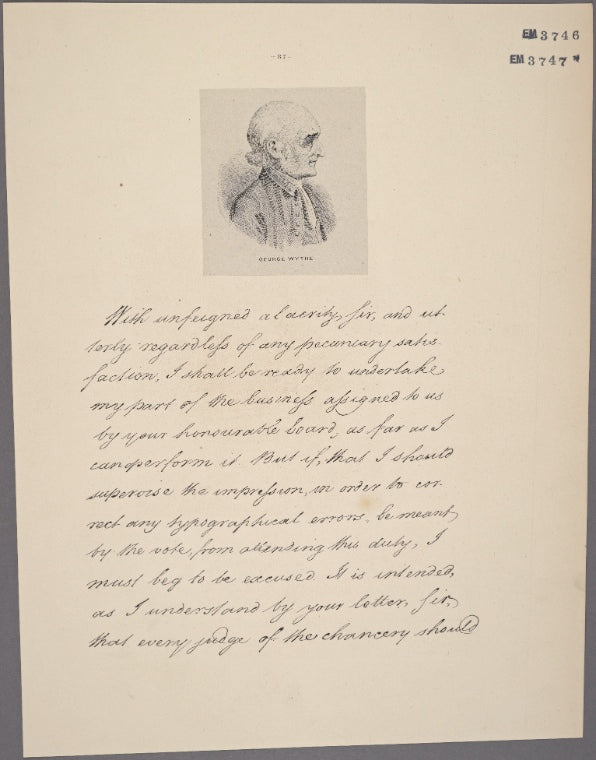 EM3746
-87-
EM3747*
GEORGE WYTHE
With unfeigned alacrity, sir, and ut-
terly regardless of any pecuniary satis-
faction, I shall be ready to undertake
my part of the business assigned to us
by your honourable board, as far as I
can perform it. But if, that I should
supervise the impression, in order to cor-
rect any typographical errors, be meant
by the vote, from attending this duty, I
must beg to be excused. It is intended,
as I understand by your letter, sir,
that every judge of the chancery should